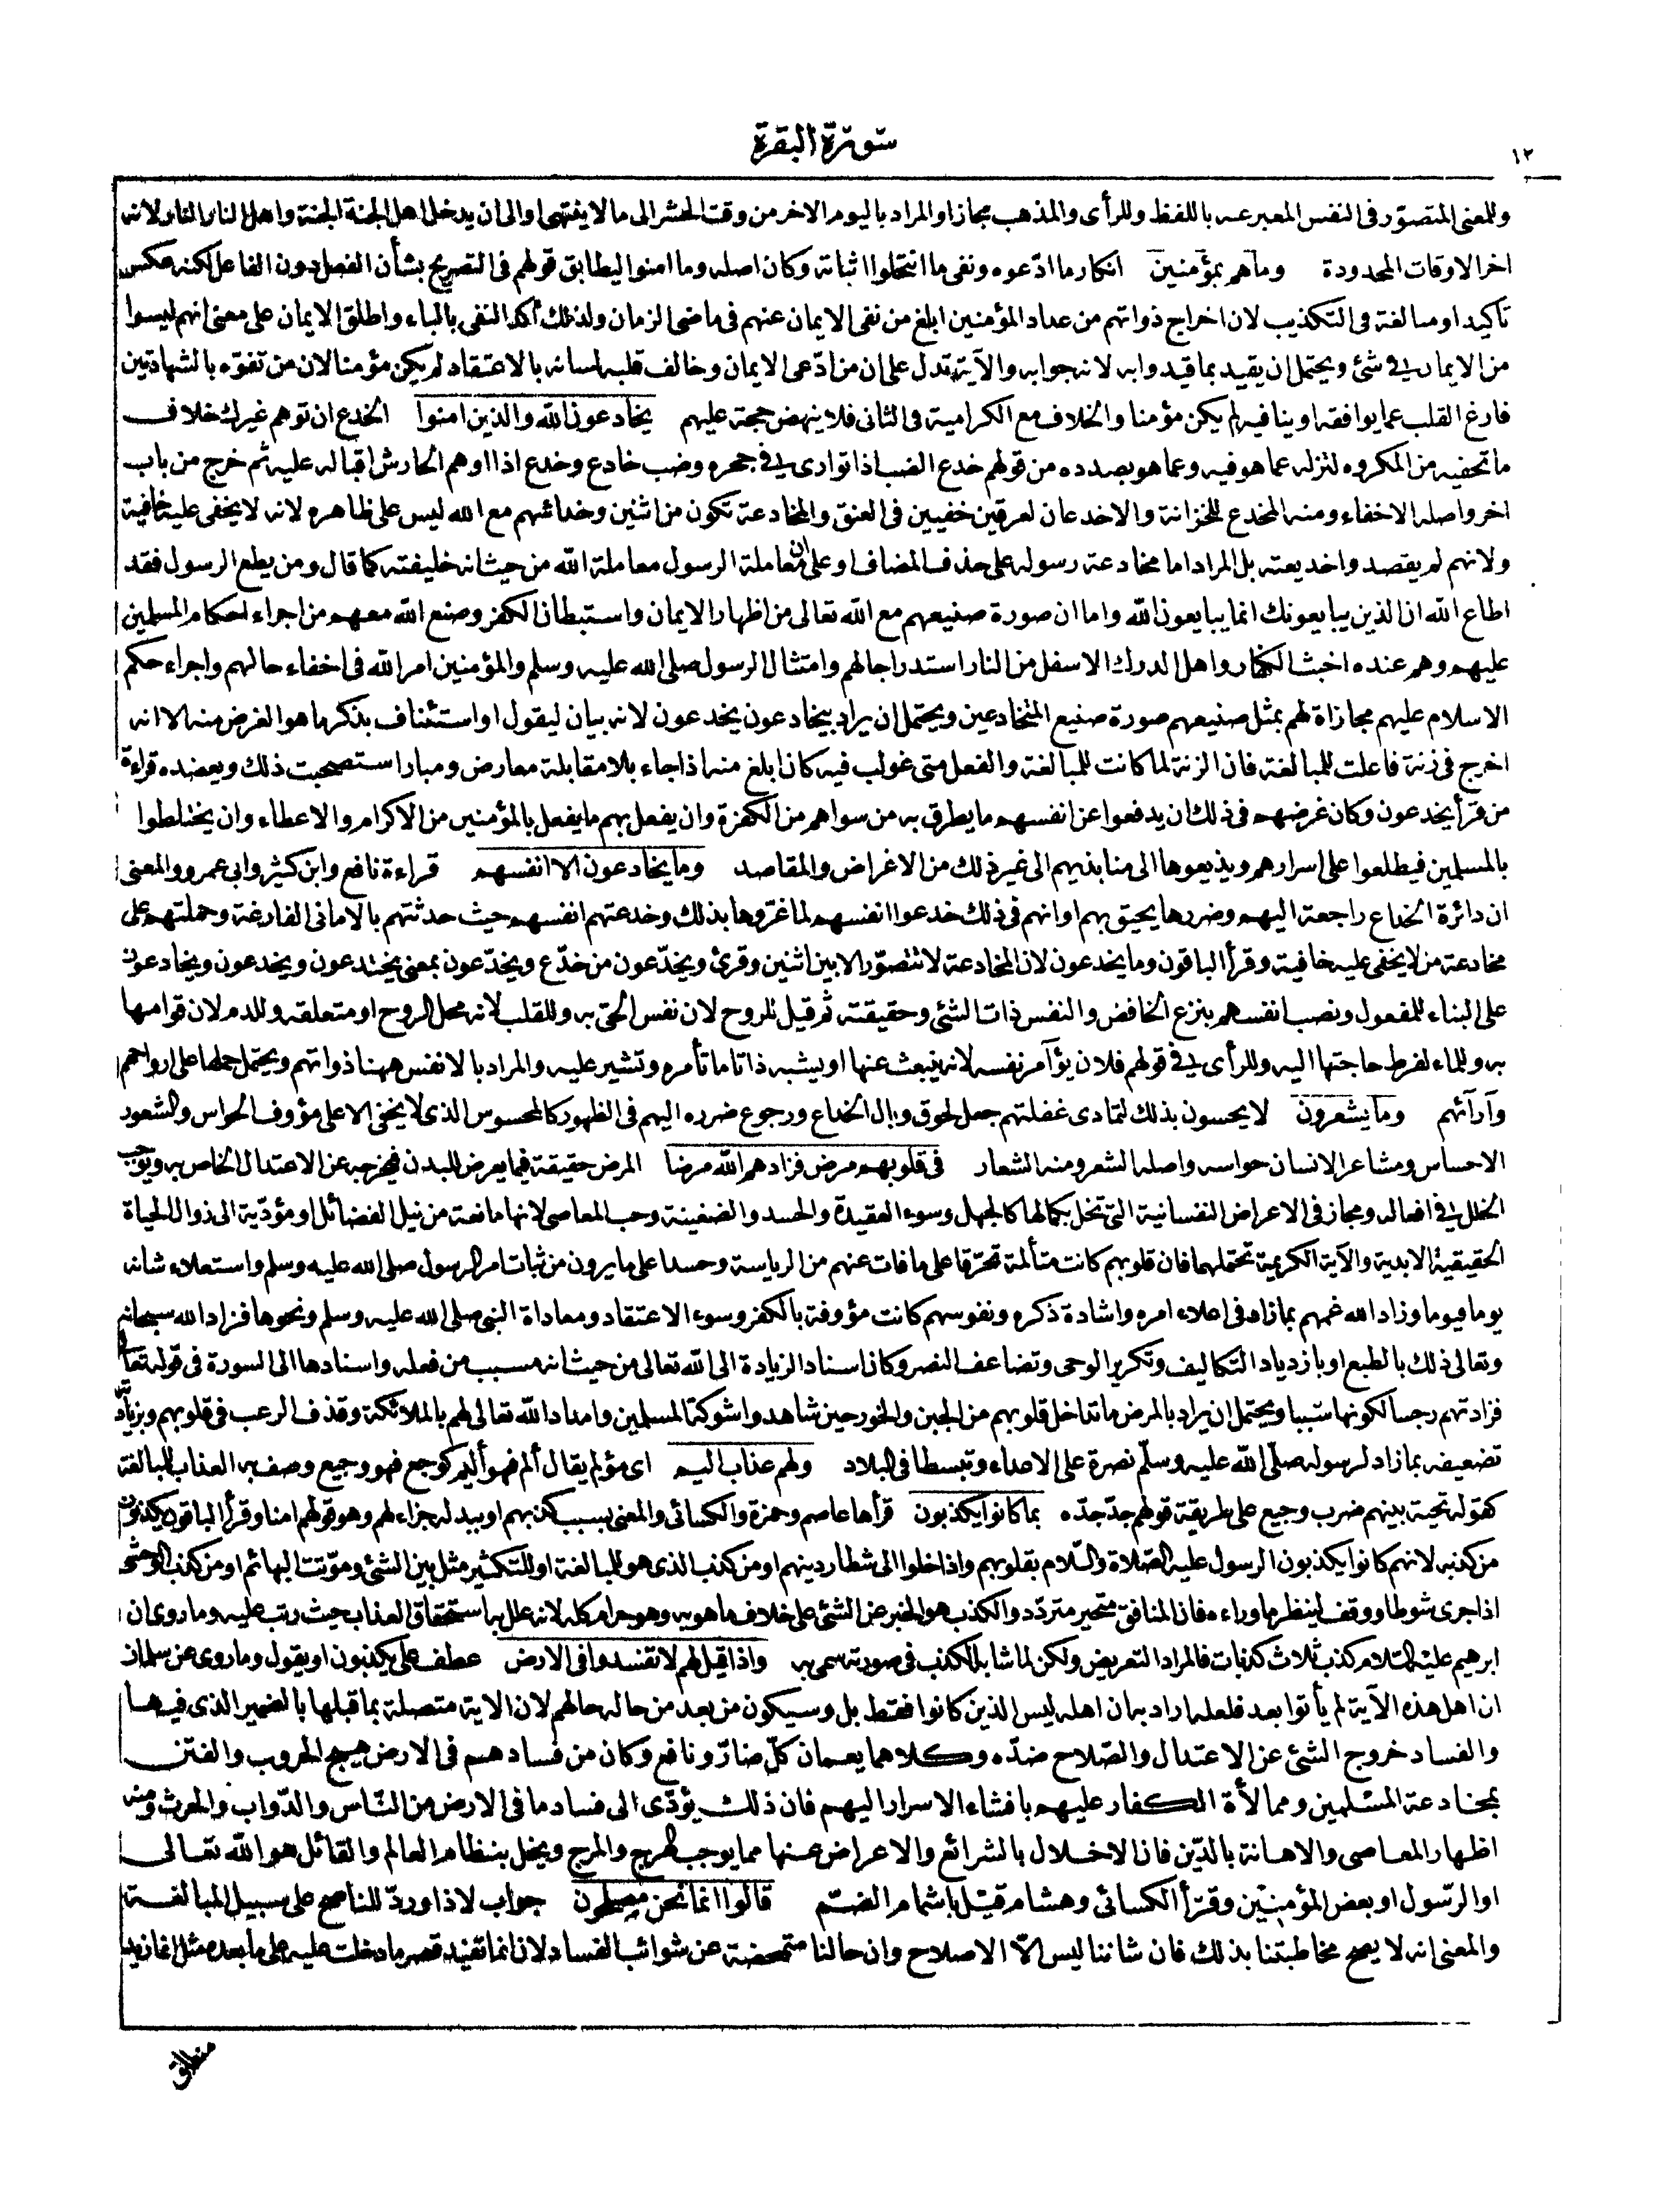 ١٢
سورة البقرة
وللمعنى المتصوّر فى النفس المعبر عنه باللفظ وللرأى والمذهب مجازا والمراد باليوم الاخر من وقت الحشر الى ما لا ينتهى او الى ان يدخل اهل الجنة الجنة واهل النار النار لانه
اخر الاوقات المحدودة وماهم بمؤمنين انكار ما ادّعوه ونفى ما انتحلوا اثباته وكان اصله وما امنوا ليطابق قولهم فى التصريح بشأن الفعل دون الفاعل لكنه عكس
تأكيدا ومبالغة فى التكذيب لان اخراج ذواتهم من عداد المؤمنين ابلغ من نفى الايمان عنهم فى ماضى الزمان ولذلك أكد النفى بالباء واطلق الايمان على معنى انهم ليسوا
من الايمان فى شئ ويحتمل ان يقيد بما قيدوا به لانه جوابه والآية تدل على ان من ادّعى الايمان وخالف قلبه لسانه بالاعتقاد لم يكن مؤمنا لان من تفوّه بالشهادتين
فارغ القلب عما يوافقه او ينافيه لم يكن مؤمنا والخلاف مع الكرامية فى الثانى فلا ينهض حجة عليهم يخادعون الله والذين امنوا الخدع ان توهم غيرك خلاف
ما تخفيه من المكروه لتنزله عما هو فيه وعما هو بصدده من قولهم خدع الضب اذا توارى فى جحره وضب خادع وخدع اذا اوهم الحارش اقباله عليه ثم خرج من باب
اخر واصله الاخفاء ومنه المخدع للخزانة والاخدعان لعرقين خفيين فى العنق والمخادعة تكون من اثنين وخداعهم مع الله ليس على ظاهره لانه لا يخفى عليه خافية
ولانهم لم يقصدوا خديعته بل المراد اما مخادعة رسوله على حذف المضاف او على ان معاملة الرسول معاملة الله من حيث انه خليفته كما قال ومن يطع الرسول فقد
اطاع الله ان الذين يبايعونك انما يبايعون الله واما ان صورة صنيعهم مع الله تعالى من اظهار الايمان واستبطان الكفر وصنع الله معهم من اجراء احكام المسلمين
عليهم وهم عنده اخبث الكفار واهل الدرك الاسفل من النار استدراجا لهم وامتثال الرسول صلى الله عليه وسلم والمؤمنين امر الله فى اخفاء حالهم واجراء حكم
الاسلام عليهم مجازاة لهم بمثل صنيعهم صورة صنيع المتخادعين ويحتمل ان يراد بيخادعون يخدعون لانه بيان ليقول او استئناف بذكر ما هو الغرض منه الا انه
اخرج فى زنة فاعلت للمبالغة فان الزنة لما كانت للمبالغة والفعل متى غولب فيه كان ابلغ منه اذا جاء بلا مقابلة معارض ومبار استصحبت ذلك ويعضده قراءة
من قرأ يخدعون وكان غرضهم فى ذلك ان يدفعوا عن انفسهم ما يطرق به من سواهم من الكفرة وان يفعل بهم ما يفعل بالمؤمنين من الاكرام والاعطاء وان يختلطوا
بالمسلمين فيطلعوا على اسرارهم ويذيعوها الى منابذيهم الى غير ذلك من الاغراض والمقاصد وما يخادعون الا انفسهم قراءة نافع وابن كثير وابى عمرو والمعنى
ان دائرة الخداع راجعة اليهم وضررها يحيق بهم او انهم فى ذلك خدعوا انفسهم لما غرّوها بذلك وخدعتهم انفسهم حيث حدثتهم بالامانى الفارغة وحملتهم على
مخادعة من لا يخفى عليه خافية وقرأ الباقون وما يخدعون لان المخادعة لا تتصوّر الا بين اثنين وقرئ ويخدّعون من خدّع ويخدّعون بمعنى يختدعون ويخدعون ويخادعون
على البناء للمفعول ونصب انفسهم بنزع الخافض والنفس ذات الشئ وحقيقته ثم قيل للروح لان نفس الحى به وللقلب لانه محل الروح او متعلقه وللدم لان قوامها
به وللماء لفرط حاجتها اليه وللرأى فى قولهم فلان يؤآمر نفسه لانه ينبعث عنها او يشبه ذاتا ما تأمره وتشير عليه والمراد بالانفس ههنا ذواتهم ويحتمل حملها على ارواحهم
وآرآئهم وما يشعرون لا يحسون بذلك لتمادى غفلتهم جعل لحوق وبال الخداع ورجوع ضرره اليهم فى الظهور كالمحسوس الذى لا يخفى الا على مؤوف الحواس والشعور
الاحساس ومشاعر الانسان حواسه واصله الشعر ومنه الشعار فى قلوبهم مرض فزادهم الله مرضا المرض حقيقة فيما يعرض للبدن فيخرجه عن الاعتدال الخاص به ويوجب
الخلل فى افعاله ومجاز فى الاعراض النفسانية التى تخل بكمالها كالجهل وسوء العقيدة والحسد والضغينة وحب المعاصى لانها مانعة من نيل الفضائل او مؤدّية الى زوال الحياة
الحقيقية الابدية والآية الكريمة تحتملهما فان قلوبهم كانت متألمة تحرّقا على ما فات عنهم من الرياسة وحسدا على ما يرون من ثبات امر الرسول صلى الله عليه وسلم واستعلاء شانه
يوما فيوما وزاد الله غمهم بما زاد فى اعلاء امره واشادة ذكره ونفوسهم كانت مؤوفة بالكفر وسوء الاعتقاد ومعاداة النبى صلى الله عليه وسلم ونحوها فزاد الله سبحانه
وتعالى ذلك بالطبع او بازدياد التكاليف وتكرير الوحى وتضاعف النصر وكان اسناد الزيادة الى الله تعالى من حيث انه مسبب من فعله واسنادها الى السورة فى قوله تعالى
فزادتهم رجسا لكونها سببا ويحتمل ان يراد بالمرض ما تداخل قلوبهم من الجبن والخور حين شاهدوا شوكة المسلمين وامداد الله تعالى لهم بالملائكة وقذف الرعب فى قلوبهم وبزيادته
تضعيفه بما زاد لرسوله صلى الله عليه وسلّم نصرة على الاعداء وتبسطا فى البلاد ولهم عذاب اليم اى مؤلم يقال ألم فهو أليم كوجع فهو وجيع وصف به العذاب للمبالغة
كقوله تحية بينهم ضرب وجيع على طريقة قولهم جدّ جدّه بما كانوا يكذبون قرأها عاصم وحمزة والكسائى والمعنى بسبب كذبهم او ببدله جزاء لهم وهو قولهم امنا وقرأ الباقون يكذبون
من كذبه لانهم كانوا يكذبون الرسول عليه الصّلاة والسّلام بقلوبهم واذا خلوا الى شطار دينهم او من كذب الذى هو للمبالغة او للتكثير مثل بين الشئ وموّتت البهائم او من كذب الوحشى
اذا جرى شوطا ووقف لينظر ما وراءه فان المنافق متحير متردّد والكذب هو الخبر عن الشئ على خلاف ما هو به وهو حرام كله لانه علل به استحقاق العذاب حيث رتب عليه وما روى ان
ابرهيم عليه السّلام كذب ثلاث كذبات فالمراد التعريض ولكن لما شابه الكذب فى صورته سمى به واذا قيل لهم لا تفسدوا فى الارض عطف على يكذبون او يقول وما روى عن سلمان
ان اهل هذه الآية لم يأتوا بعد فلعله اراد به ان اهله ليس الذين كانوا فقط بل وسيكون من بعد من حاله حالهم لان الاية متصلة بما قبلها بالضمير الذى فيها
والفساد خروج الشئ عن الاعتدال والصّلاح ضدّه وكلاهما يعمان كلّ ضارّ ونافع وكان من فسادهم فى الارض هيج الحروب والفتن
بمخادعة المسلمين وممالأة الكفار عليهم بافشاء الاسرار اليهم فان ذلك يؤدّى الى فساد ما فى الارض من النّاس والدّواب والحرث ومنه
اظهار المعاصى والاهانة بالدّين فان الاخلال بالشرائع والاعراض عنها مما يوجب الهرج والمرج ويخل بنظام العالم والقائل هو الله تعالى
او الرّسول او بعض المؤمنين وقرأ الكسائى وهشام قيل باشمام الضمّ قالوا انما نحن مصلحون جواب لاذا وردّ للناصح على سبيل المبالغة
والمعنى انه لا يصح مخاطبتنا بذلك فان شاننا ليس الّا الاصلاح وان حالنا متمحضة عن شوائب الفساد لان انما تفيد قصر ما دخلت عليه على ما بعده مثل انما زيد
منطلق